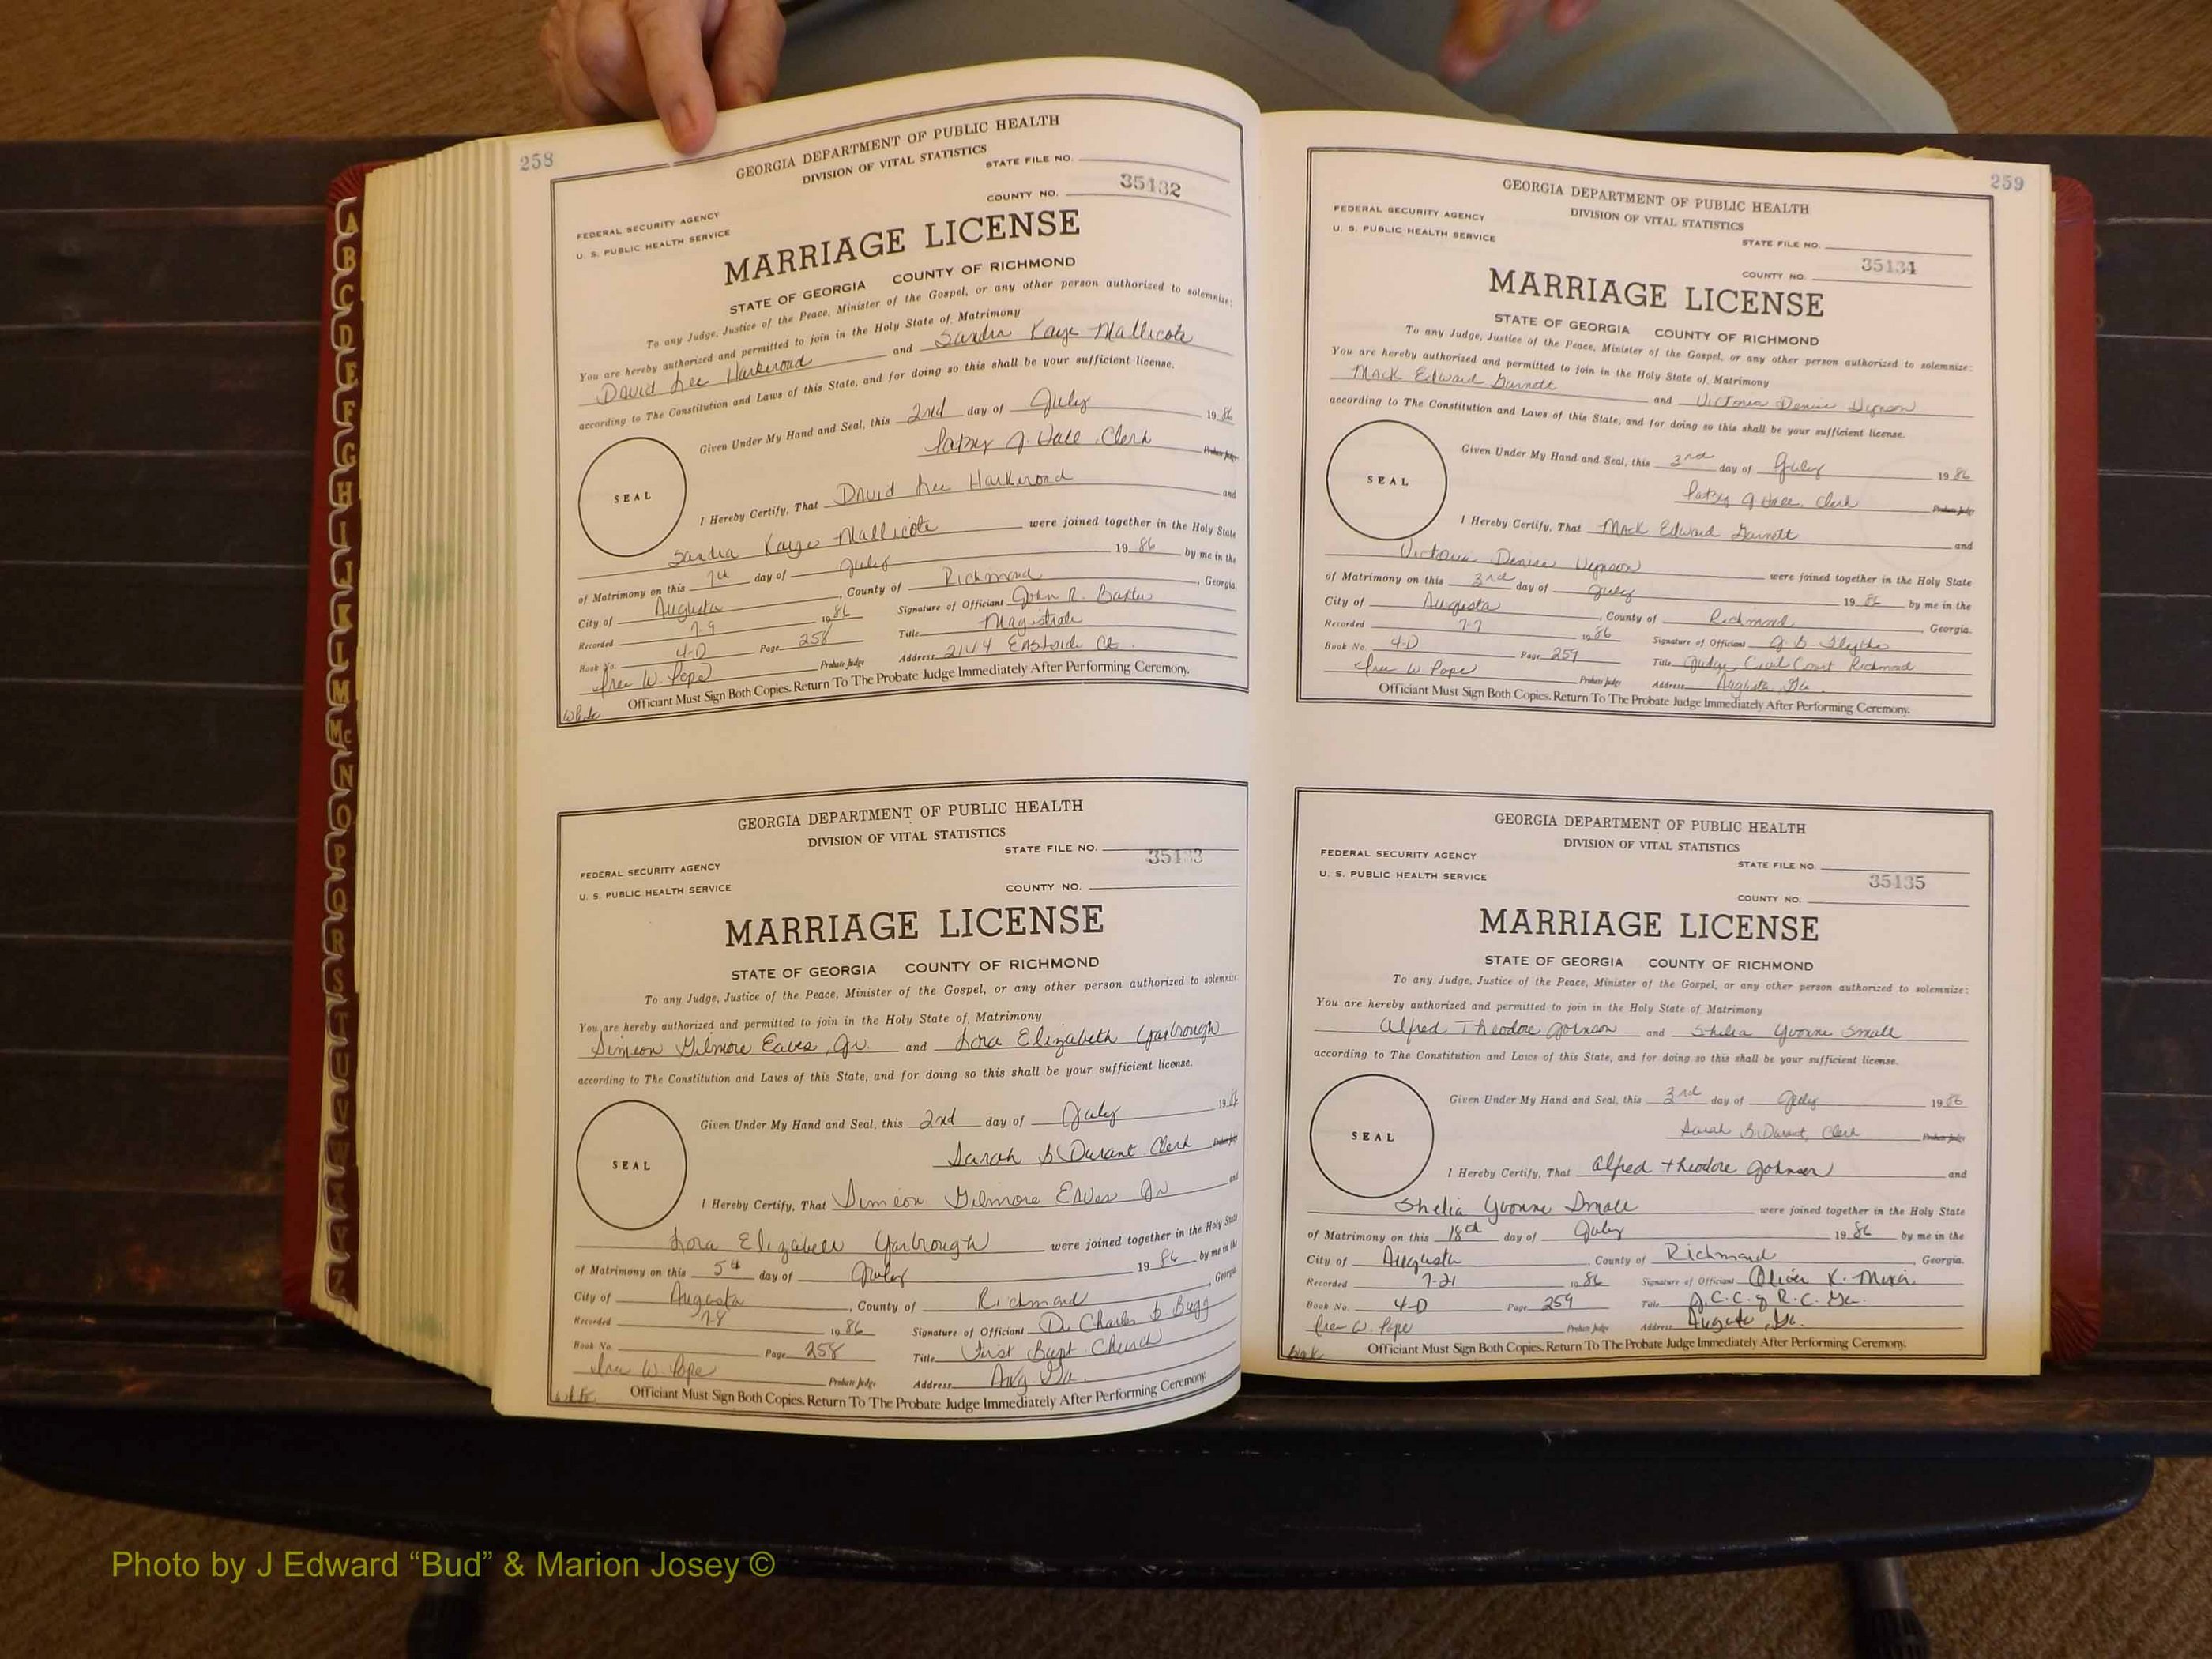 258
GEORGIA DEPARTMENT OF PUBLIC HEALTH
DIVISION OF VITAL STATISTICS
STATE FILE NO.
35132
COUNTY NO.
FEDERAL SECURITY AGENCY
U. S. PUBLIC HEALTH SERVICE
MARRIAGE LICENSE
STATE OF GEORGIA COUNTY OF RICHMOND
To any Judge, Justice of the Peace, Minister of the Gospel, or any other person authorized to solemnize:
You are hereby authorized and permitted to join in the Holy State of Matrimony
David Lee Harkeroad and Sandra Kaye Mallicote
according to The Constitution and Laws of this State, and for doing so this shall be your sufficient license.
Given Under My Hand and Seal, this 2nd day of July 1986
Patsy J. Hall, Clerk Probate Judge
SEAL
I Hereby Certify, That David Lee Harkeroad and
Sandra Kaye Mallicote were joined together in the Holy State
of Matrimony on this 7th day of July 1986 by me in the
City of Augusta, County of Richmond, Georgia.
Recorded 7-9 1986 Signature of Officiant John R. Baxter
Book No. 4-D Page 258 Title Magistrate
Probate Judge Address 2144 Eastside Ct.
Officiant Must Sign Both Copies. Return To The Probate Judge Immediately After Performing Ceremony.
White
GEORGIA DEPARTMENT OF PUBLIC HEALTH
DIVISION OF VITAL STATISTICS
STATE FILE NO.
35133
FEDERAL SECURITY AGENCY
U. S. PUBLIC HEALTH SERVICE
COUNTY NO.
MARRIAGE LICENSE
STATE OF GEORGIA COUNTY OF RICHMOND
To any Judge, Justice of the Peace, Minister of the Gospel, or any other person authorized to solemnize
You are hereby authorized and permitted to join in the Holy State of Matrimony
Simeon Gilmore Eaves, Jr. and Lora Elizabeth Yarbrough
according to The Constitution and Laws of this State, and for doing so this shall be your sufficient license.
Given Under My Hand and Seal, this 2nd day of July 1986
Sarah B Durant Clerk Probate Judge
SEAL
I Hereby Certify, That Simeon Gilmore Eaves Jr and
Lora Elizabeth Yarbrough were joined together in the Holy State
of Matrimony on this 5th day of July 1986 by me in the
City of Augusta, County of Richmond, Georgia
Recorded 7-8 1986 Signature of Officiant Dr. Charles B. Bugg
Book No. Page 258 Title First Bapt. Church
Probate Judge Address Aug Ga.
Officiant Must Sign Both Copies. Return To The Probate Judge Immediately After Performing Ceremony.
White
259
GEORGIA DEPARTMENT OF PUBLIC HEALTH
DIVISION OF VITAL STATISTICS
FEDERAL SECURITY AGENCY
U. S. PUBLIC HEALTH SERVICE
STATE FILE NO.
35134
COUNTY NO.
MARRIAGE LICENSE
STATE OF GEORGIA COUNTY OF RICHMOND
To any Judge, Justice of the Peace, Minister of the Gospel, or any other person authorized to solemnize:
You are hereby authorized and permitted to join in the Holy State of Matrimony
Mack Edward Garnett and Victoria Denise
according to The Constitution and Laws of this State, and for doing so this shall be your sufficient license.
Given Under My Hand and Seal, this 3rd day of July 1986
Patsy J Hall, Clerk Probate Judge
SEAL
I Hereby Certify, That Mack Edward Garnett and
Victoria Denise were joined together in the Holy State
of Matrimony on this 3rd day of July 1986 by me in the
City of Augusta, County of Richmond, Georgia.
Recorded 7-7 1986 Signature of Officiant
Book No. 4-D Page 259 Title Judge Civil Court Richmond
Probate Judge Address Augusta, Ga.
Officiant Must Sign Both Copies. Return To The Probate Judge Immediately After Performing Ceremony.
GEORGIA DEPARTMENT OF PUBLIC HEALTH
DIVISION OF VITAL STATISTICS
FEDERAL SECURITY AGENCY
U. S. PUBLIC HEALTH SERVICE
STATE FILE NO.
35135
COUNTY NO.
MARRIAGE LICENSE
STATE OF GEORGIA COUNTY OF RICHMOND
To any Judge, Justice of the Peace, Minister of the Gospel, or any other person authorized to solemnize:
You are hereby authorized and permitted to join in the Holy State of Matrimony
Alfred Theodore Johnson and Shelia Yvonne Small
according to The Constitution and Laws of this State, and for doing so this shall be your sufficient license.
Given Under My Hand and Seal, this 3rd day of July 1986
Sarah B. Durant, Clerk Probate Judge
SEAL
I Hereby Certify, That Alfred Theodore Johnson and
Shelia Yvonne Small were joined together in the Holy State
of Matrimony on this 18th day of July 1986 by me in the
City of Augusta, County of Richmond, Georgia.
Recorded 7-21 1986 Signature of Officiant Oliver K. Mixon
Book No. 4-D Page 259 Title J.C.C. of R.C. Ga.
Probate Judge Address Augusta, Ga.
Officiant Must Sign Both Copies. Return To The Probate Judge Immediately After Performing Ceremony.
Photo by J Edward “Bud” & Marion Josey ©